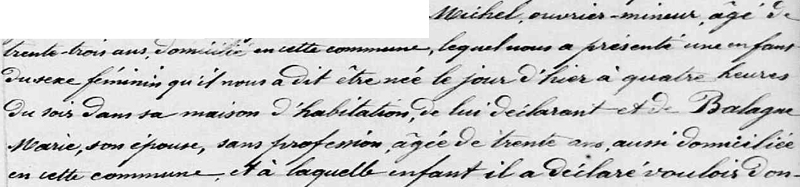 Michel, ouvrier-mineur, âgé de
trente-trois ans, domicilié en cette commune, lequel nous a présenté une enfant
du sexe féminin qu'il nous a dit être née le jour d'hier à quatre heures
du soir dans sa maison d'habitation, de lui déclarant et de Balague
Marie, son épouse, sans profession, âgée de trente ans, aussi domiciliée
en cette commune, et à laquelle enfant il a déclaré vouloir don-